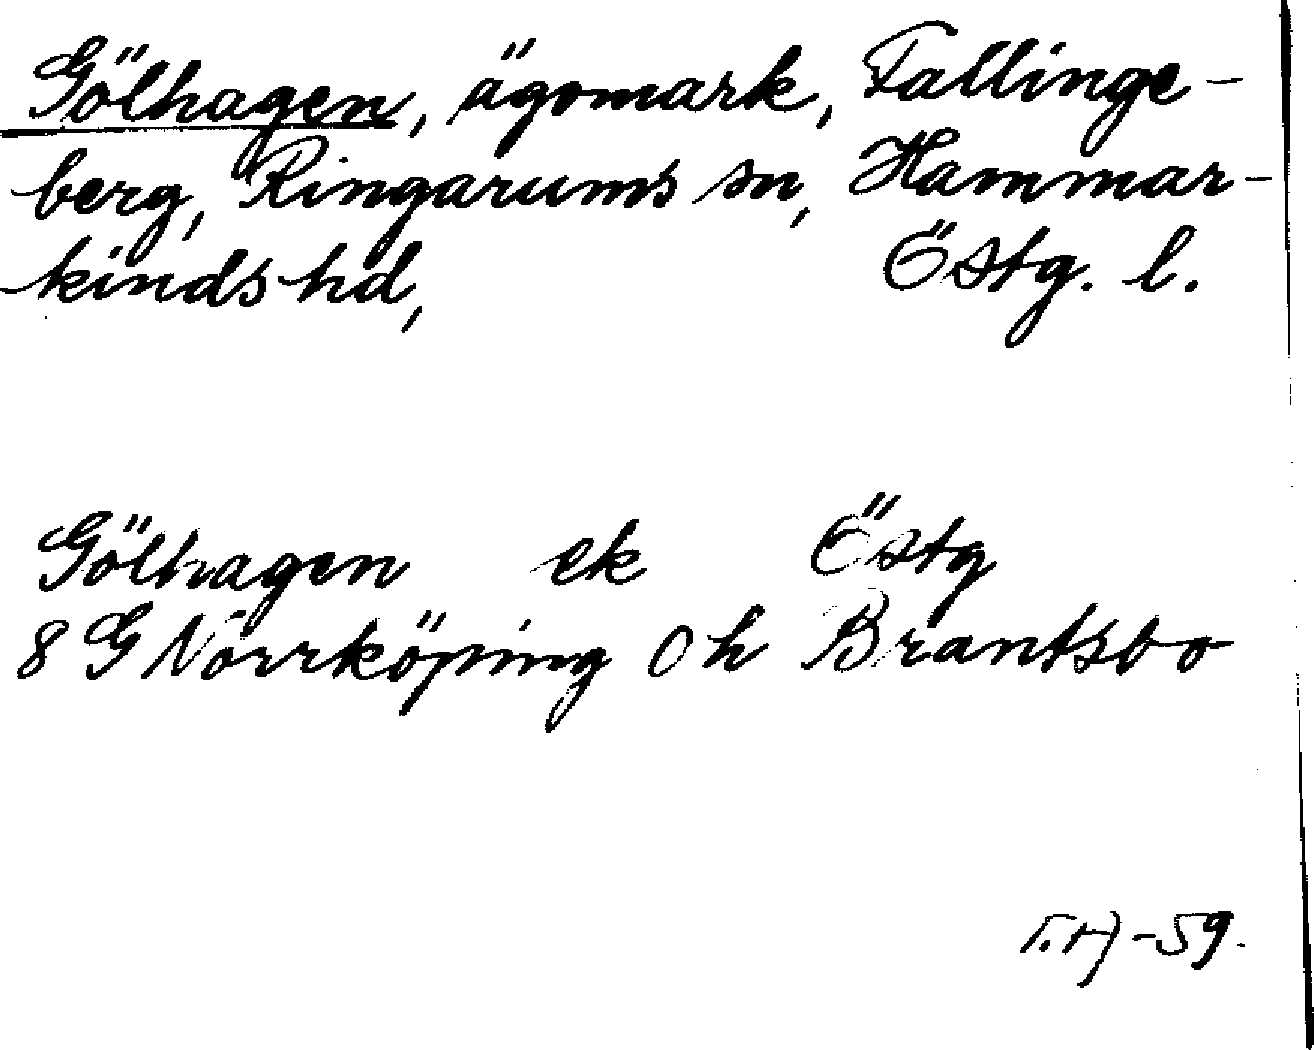 Gölhagen, ägomark, Fallinge-
berg, Ringarums sn, Hammar-
kinds hd, Östg. l.
Gölhagen ek Östg
8 G Norrköping 0 h Brantsbo
T.H-59.